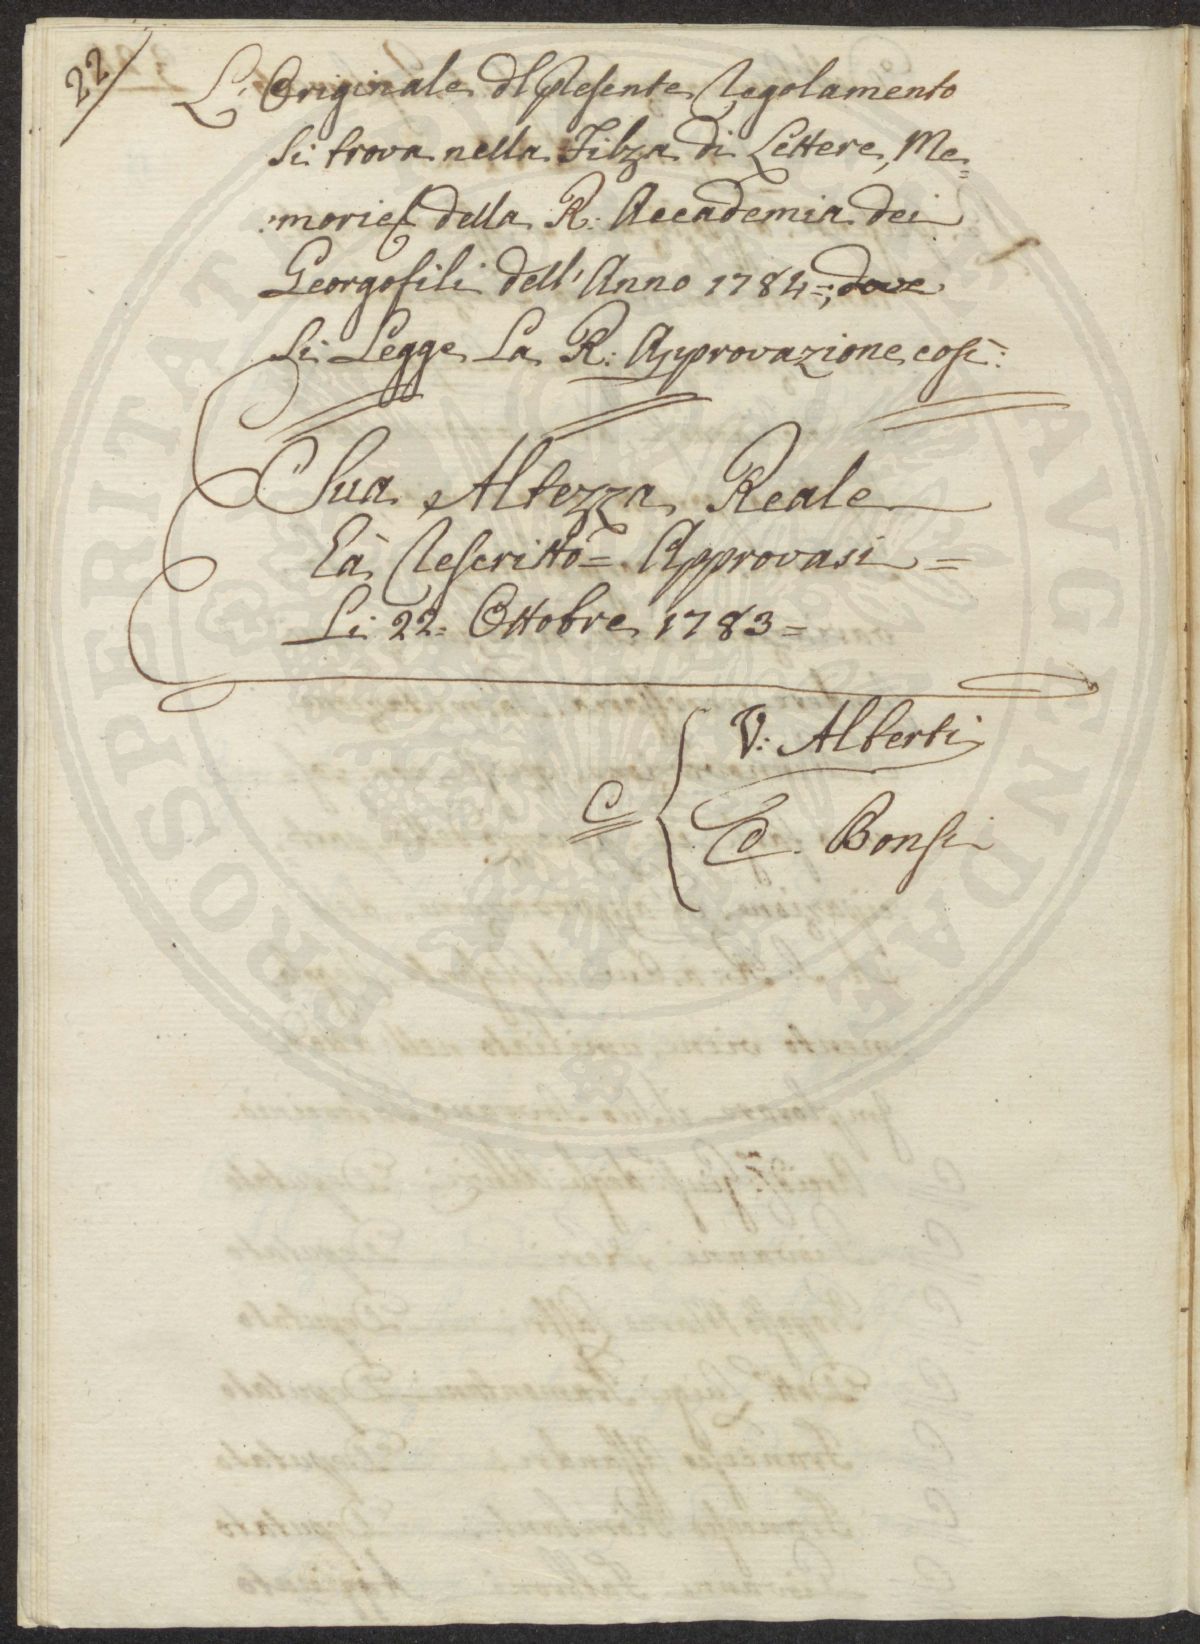 22
L'Originale dl Presente Regolamento
si trova nella Filza di Lettere, Me=
morie della R: Accademia dei
Georgofili dell'Anno 1784=; dove
si Legge La R: Approvazione così:
Sua Altezza Reale
Hà Rescritto = Approvasi =
Li 22= Ottobre 1783=
C V: Alberti
C. Bonsi
PROSPERITATI PUBLICAE AUGENDAE